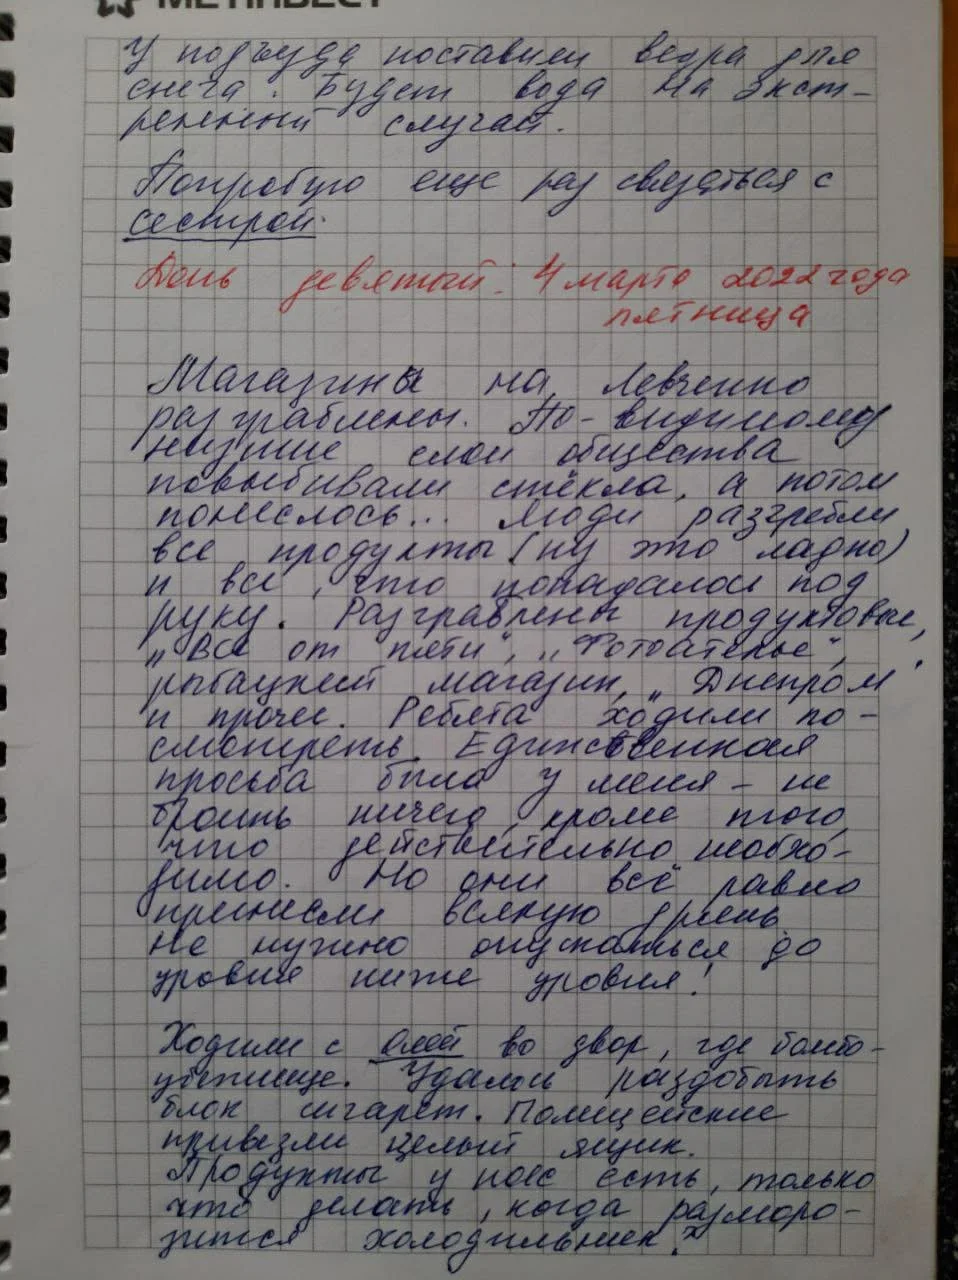 МЕТИНВЕСТ
У подъезда поставили ведра для
снега. Будет вода на экст-
ренный случай.
Попробую еще раз связаться с
сестрой.
День девятый: 4 марта 2022 года
пятница
Магазины на Левченко
разграблены. По-видимому
низшие слои общества
повыбивали стёкла, а потом
понеслось... Люди разгребли
все продукты (ну это ладно)
и все, что попадалось под
руку. Разграблены продуктовые,
"Все от пяти", "Фотоателье",
рыбацкий магазин, "Днепром"
и прочее. Ребята ходили по-
смотреть. Единственная
просьба была у меня - не
брать ничего, кроме того,
что действительно необхо-
димо. Но они всё равно
принесли всякую дрянь
Не нужно опускаться до
уровня ниже уровня!
Ходили с Олей во двор, где бомбо-
убежище. Удалось раздобыть
блок сигарет. Полицейские
привезли целый ящик.
Продукты у нас есть, только
что делать, когда размора-
зится холодильник?